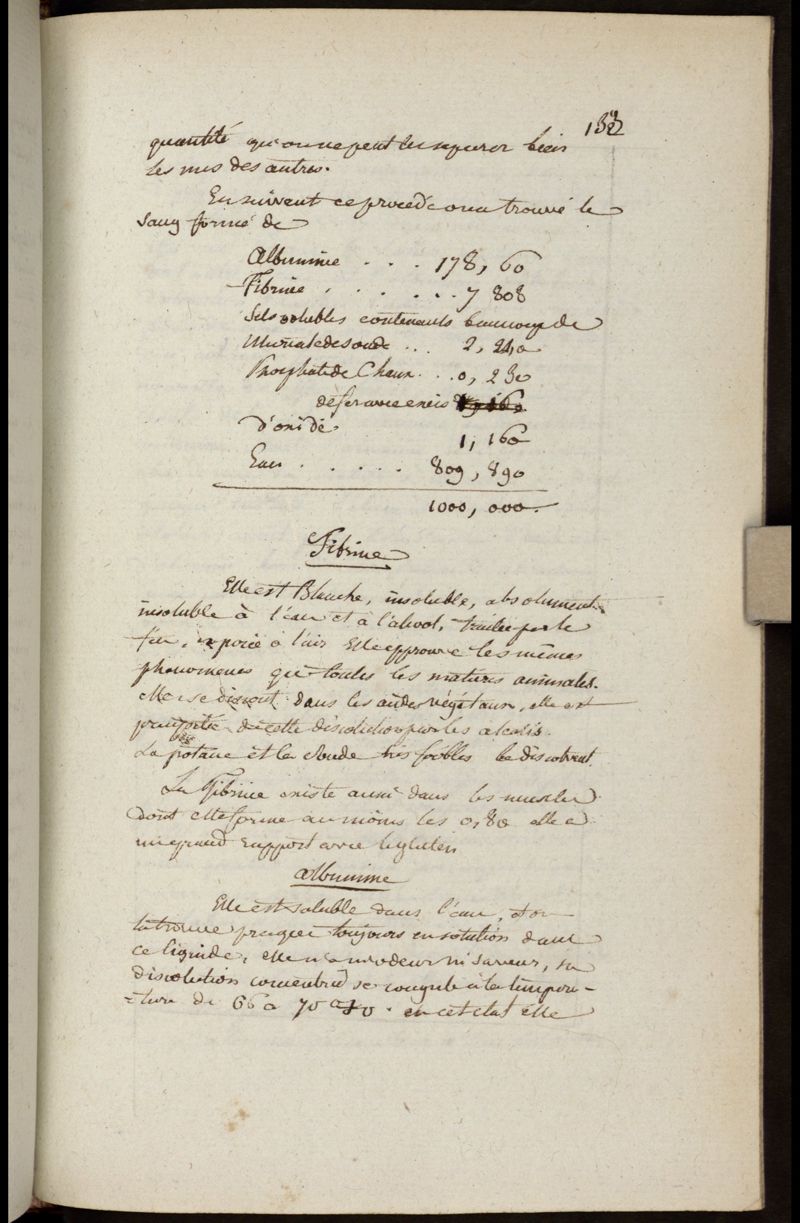 132
quantité qu'on ne peut les separer bien
les unes des autres.
En suivant ce procedé on a trouvé le
Sang formé de
Albumine . . . 178, 60
Fibrine . . . . . . 7 808
Sels solubles contenants beaucoup de
Muriate de soude . . . 2, 210
Phosphate de Chaux . . . 0, 230
de fer avec excés
d'oxide 1, 160
Eau . . . . . 809, 890
1000, 000.
Fibrine
Elle est Blanche, insoluble, absolument
insoluble à l'eau et à l'alcool, traitée par le
feu, exposée à l'air Elle epprouve les mêmes
phenomenes que toutes les matieres animales.
Elle se dissout dans les acides végétaux, elle est
precipitée de cette dissolution par les alcalis.
La potasse et la soude très foibles la dissolvent.
La Fibrine existe aussi dans les muscles
dont elle forme au moins les 0,80 elle a
un grand rapport avec le gluten
Albumine
Elle est soluble dans l'eau, et on
la trouve presque toujours en solution dans
ce liquide, elle n'a ni odeur ni saveur, sa
dissolution concentrée se coagule à la tempera-
-ture de 66 a 70 . en cet etat elle